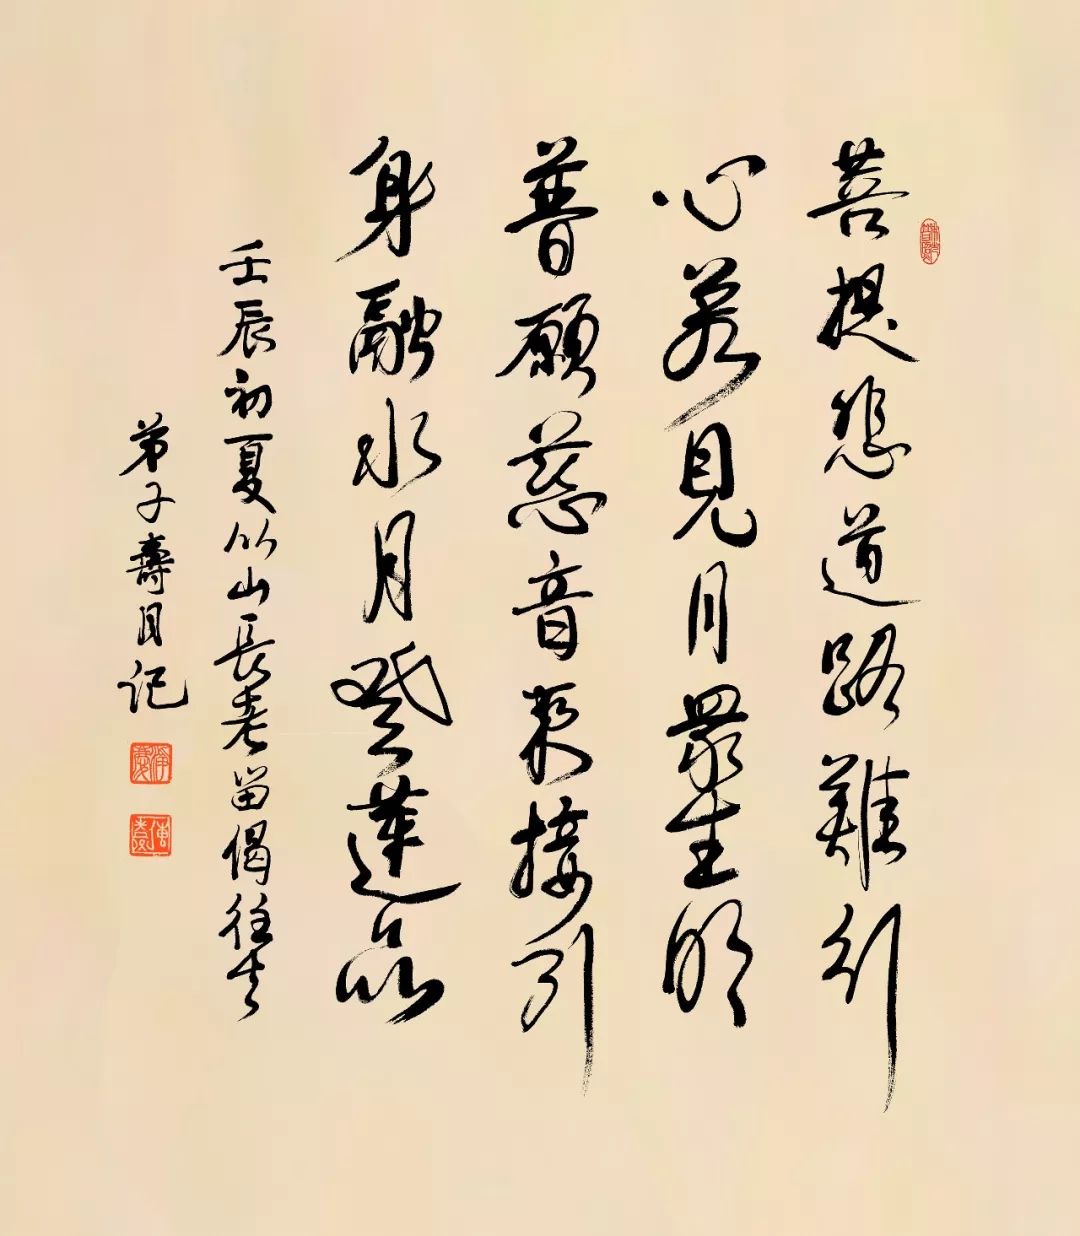 菩提悲道路難行
心若見月眾生明
普願慈音來接引
身融水月登蓮品
壬辰初夏竹山長老留偈往生
弟子壽目記